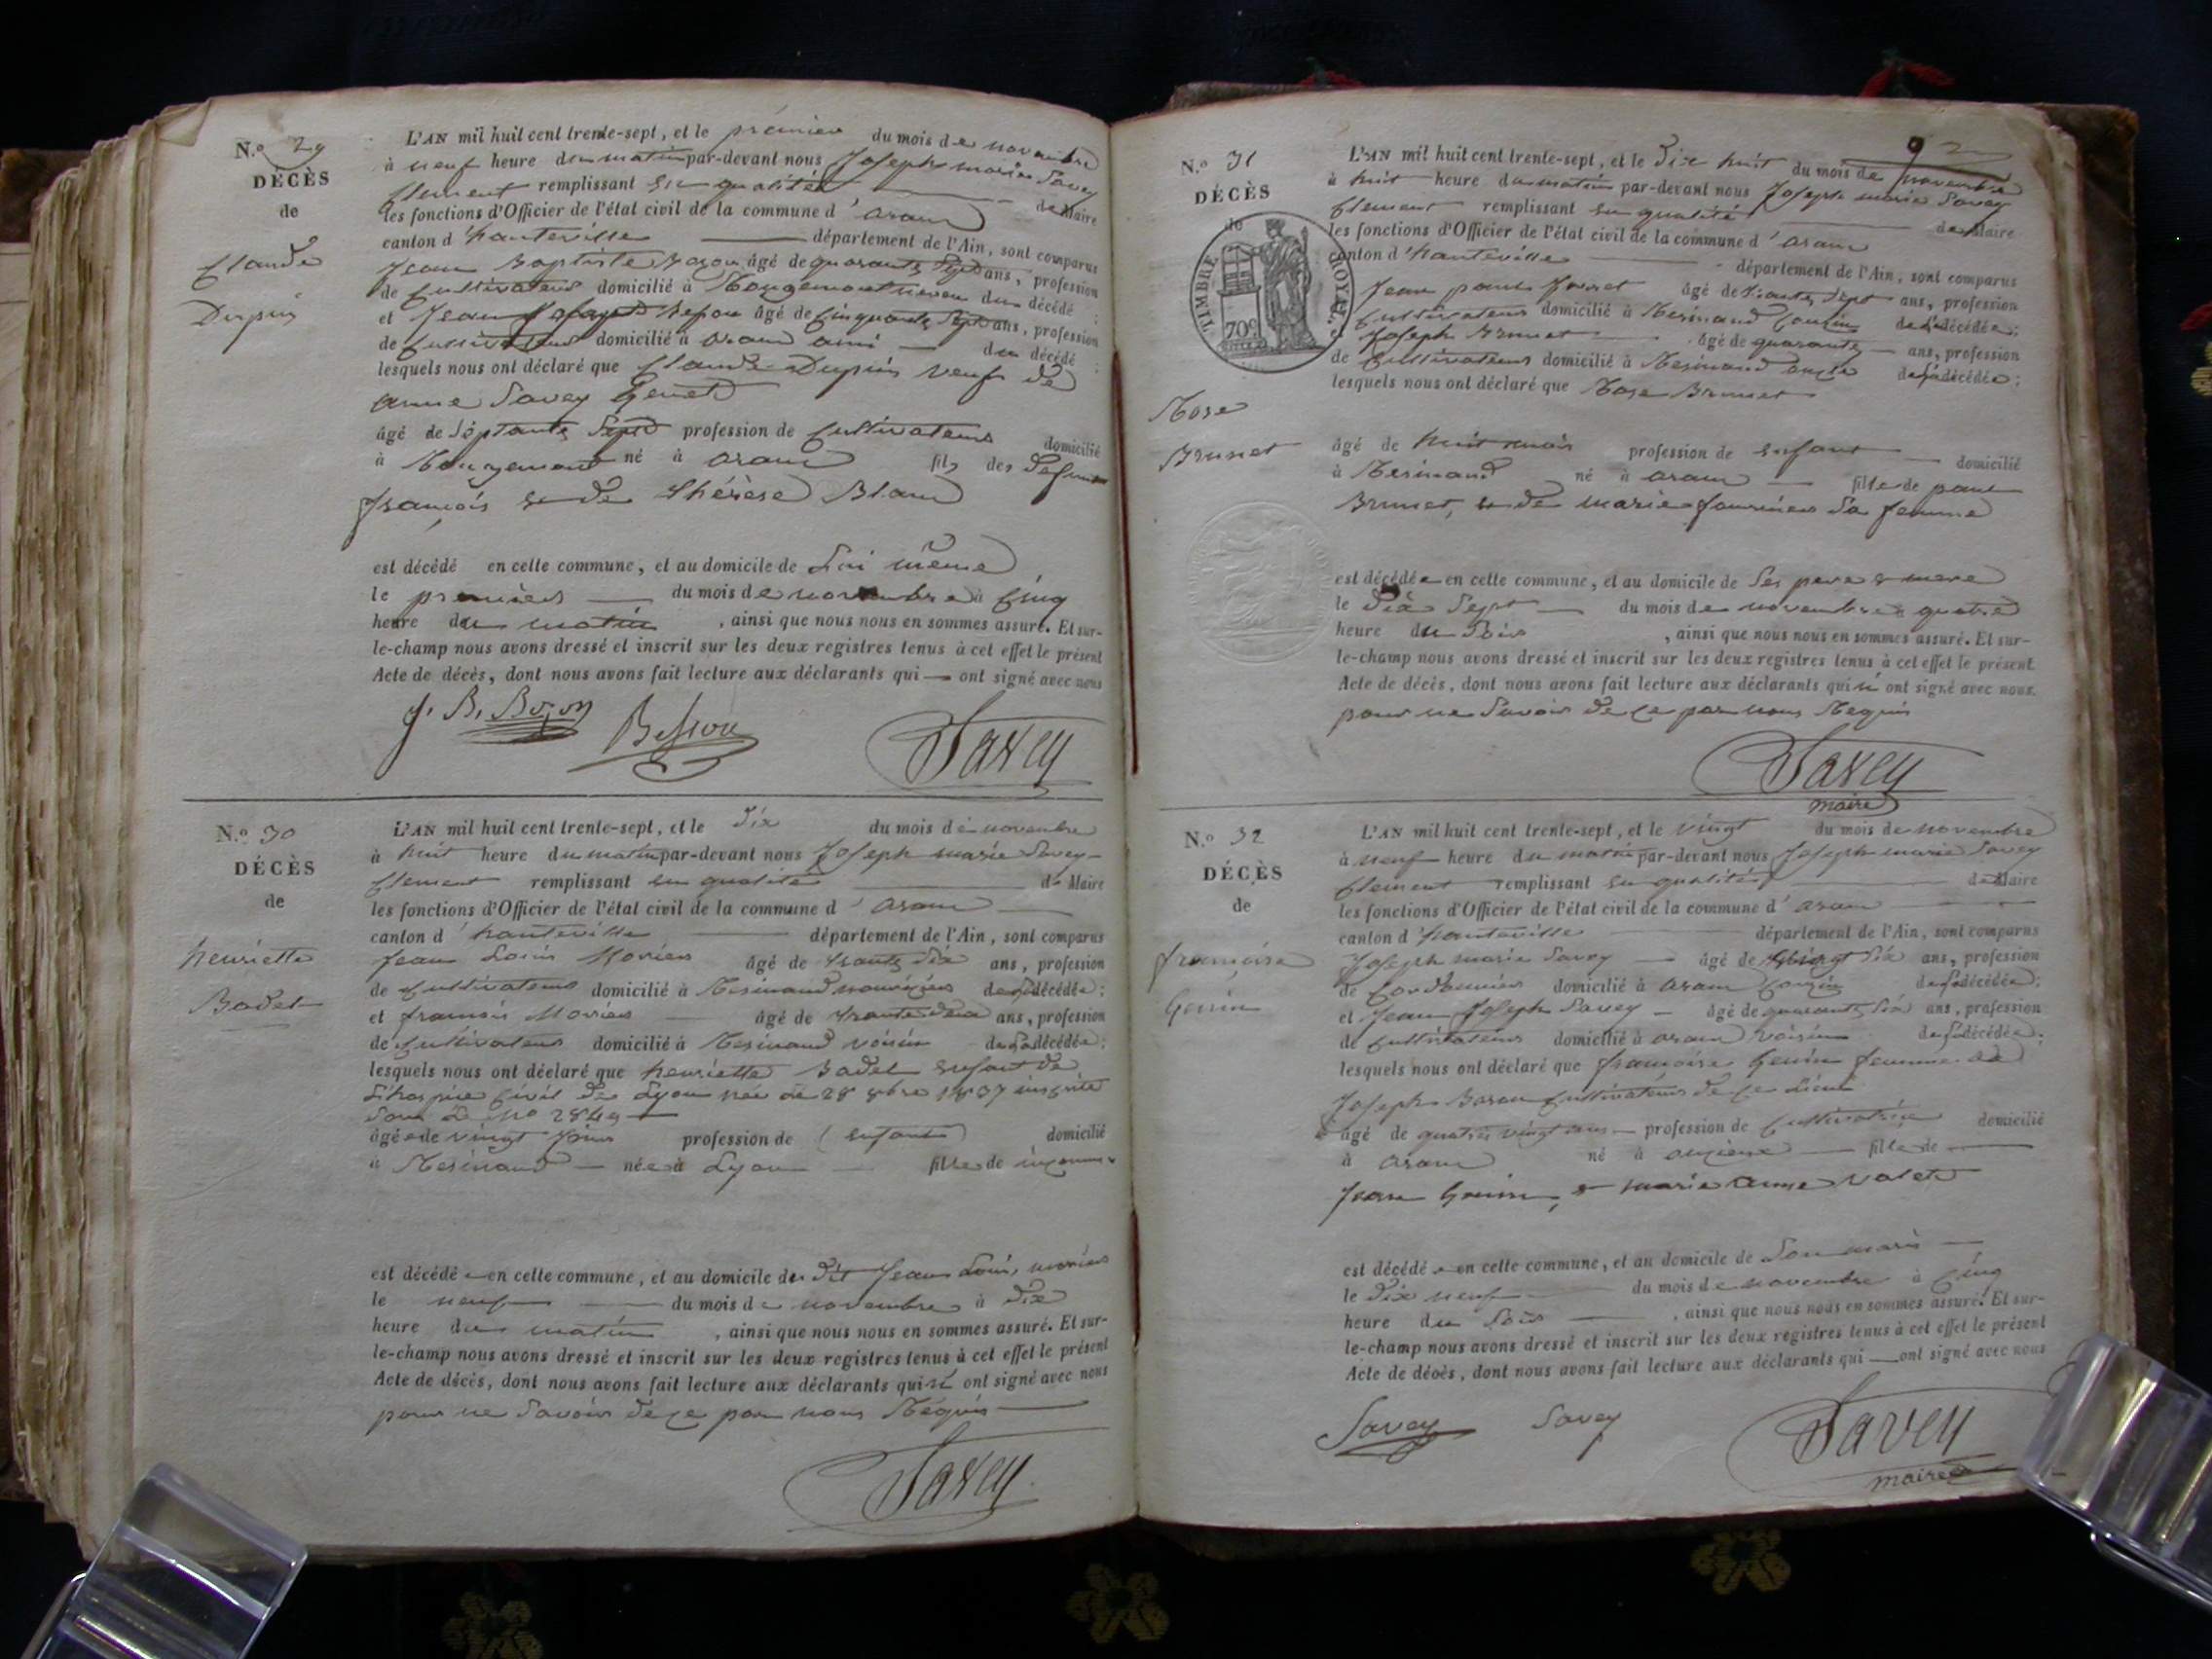 N.o 29
DÉCÈS
de
Claude
Dupuis
L'AN mil huit cent trente-sept, et le premier du mois de novembre
à neuf heure du matin par-devant nous Joseph marie Savey
Clement remplissant en qualité de Maire
les fonctions d'Officier de l'état civil de la commune d'aranc
canton d'hauteville département de l'Ain, sont comparus
Jean Baptiste Bozon âgé de quarante Sept ans, profession
de Cultivateur domicilié à Rougemont neveu du décédé ;
et Jean Joseph Besson âgé de Cinquante Sept ans, profession
de Cultivateur domicilié à aranc ami du décédé ;
lesquels nous ont déclaré que Claude Dupuis veuf de
anne Savey Genet
âgé de Septante Sept profession de Cultivateur domicilié
à Rougemont né à aranc fils des defunts
françois & de thérèse Blanc
est décédé en cette commune, et au domicile de Lui même
le premier du mois de novembre à Cinq
heure du matin , ainsi que nous nous en sommes assuré. Et sur-
le-champ nous avons dressé et inscrit sur les deux registres tenus à cet effet le présent
Acte de décès, dont nous avons fait lecture aux déclarants qui ont signé avec nous
J. B. Bozon Besson Savey
N.o 30
DÉCÈS
de
henriette
Badet
L'AN mil huit cent trente-sept, et le Dix du mois de novembre
à huit heure du matin par-devant nous Joseph marie Savey
Clement remplissant en qualité de Maire
les fonctions d'Officier de l'état civil de la commune d'aranc
canton d'hauteville département de l'Ain, sont comparus
Jean Louis Morier âgé de trante Dix ans, profession
de Cultivateur domicilié à Resinand nouricier de la décédée ;
et francois Morier âgé de trante deux ans, profession
de Cultivateur domicilié à Resinand voisin de la décédée ;
lesquels nous ont déclaré que henriette Badet enfant de
L'hospice Civil de Lyon née le 28 8bre 1837 inscrite
Sous Le No 2849
âgée de vingt jours profession de (enfant) domicilié
à Resinand née à Lyon fille de inconnus
est décédée en cette commune, et au domicile de dit Jean Louis morier
le neuf du mois de novembre à Dix
heure du matin , ainsi que nous nous en sommes assuré. Et sur-
le-champ nous avons dressé et inscrit sur les deux registres tenus à cet effet le présent
Acte de décès, dont nous avons fait lecture aux déclarants qui n' ont signé avec nous
pour ne Savoir de ce par nous Requis
Savey
N.o 31
DÉCÈS
de
TIMBRE ROYAL
70c
Rose
Brunet
L'AN mil huit cent trente-sept, et le Dix huit du mois de novembre
à huit heure du matin par-devant nous Joseph marie Savey
Clement remplissant en qualité de Maire
les fonctions d'Officier de l'état civil de la commune d'aranc
canton d'hauteville département de l'Ain, sont comparus
Jean paul âgé de trante Sept ans, profession
Cultivateur domicilié à Resinand Cousin de la décédée ;
Joseph Brunet âgé de quarante ans, profession
de Cultivateur domicilié à Resinand oncle de la décédée ;
lesquels nous ont déclaré que Rose Brunet
âgé de huit mois profession de enfant domicilié
à Resinand né à aranc fille de paul
Brunet, & de marie fournier Sa femme
est décédée en cette commune, et au domicile de Ses pere & mere
le Dix Sept du mois de novembre à quatre
heure du Soir , ainsi que nous nous en sommes assuré. Et sur-
le-champ nous avons dressé et inscrit sur les deux registres tenus à cet effet le présent
Acte de décès, dont nous avons fait lecture aux déclarants qui n' ont signé avec nous.
pour ne Savoir de ce par nous Requis
Savey
maire
N.o 32
DÉCÈS
de
françoise
Genin
L'AN mil huit cent trente-sept, et le vingt du mois de novembre
à neuf heure du matin par-devant nous Joseph marie Savey
Clement remplissant en qualité de Maire
les fonctions d'Officier de l'état civil de la commune d'aranc
canton d'hauteville département de l'Ain, sont comparus
Joseph marie Savey âgé de vingt Six ans, profession
de Cordonnier domicilié à aranc Cousin de la décédée ;
et Jean Joseph Savey âgé de quarante Six ans, profession
de Cultivateur domicilié à aranc voisin de la décédée ;
lesquels nous ont déclaré que françoise Genin femme de
Joseph Baron Cultivateur de Ce Lieu
âgé de quatre vingt ans profession de Cultivatrice domicilié
à aranc né à fille de
Jean Genin, & marie anne valet
est décédée en cette commune, et au domicile de Son mari
le Dix neuf du mois de novembre à Cinq
heure du Soir , ainsi que nous nous en sommes assuré. Et sur-
le-champ nous avons dressé et inscrit sur les deux registres tenus à cet effet le présent
Acte de décès, dont nous avons fait lecture aux déclarants qui ont signé avec nous
Savey Savey Savey
maire